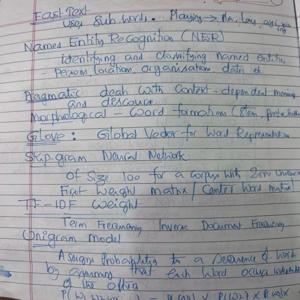 Fast Text
Uses Sub words. Playing → Pla, lay,
Named Entity Recognition (NER)
Identifying and Classifying Named Entities
Person location, organisation date etc
Pragmatic deals with Context-dependent meaning
and discourse
Morphological - Word formation
Glove: Global Vector for Word Representation
Skip-gram Neural Network
Of Size 100 for a Corpus with
First Weight matrix / Center Word matrix
TF-IDF Weight
Term Frequency Inverse Document Frequency
Unigram model
Assigns Probability to a Sequence of words
by assuming that each Word occurs independent
of the others